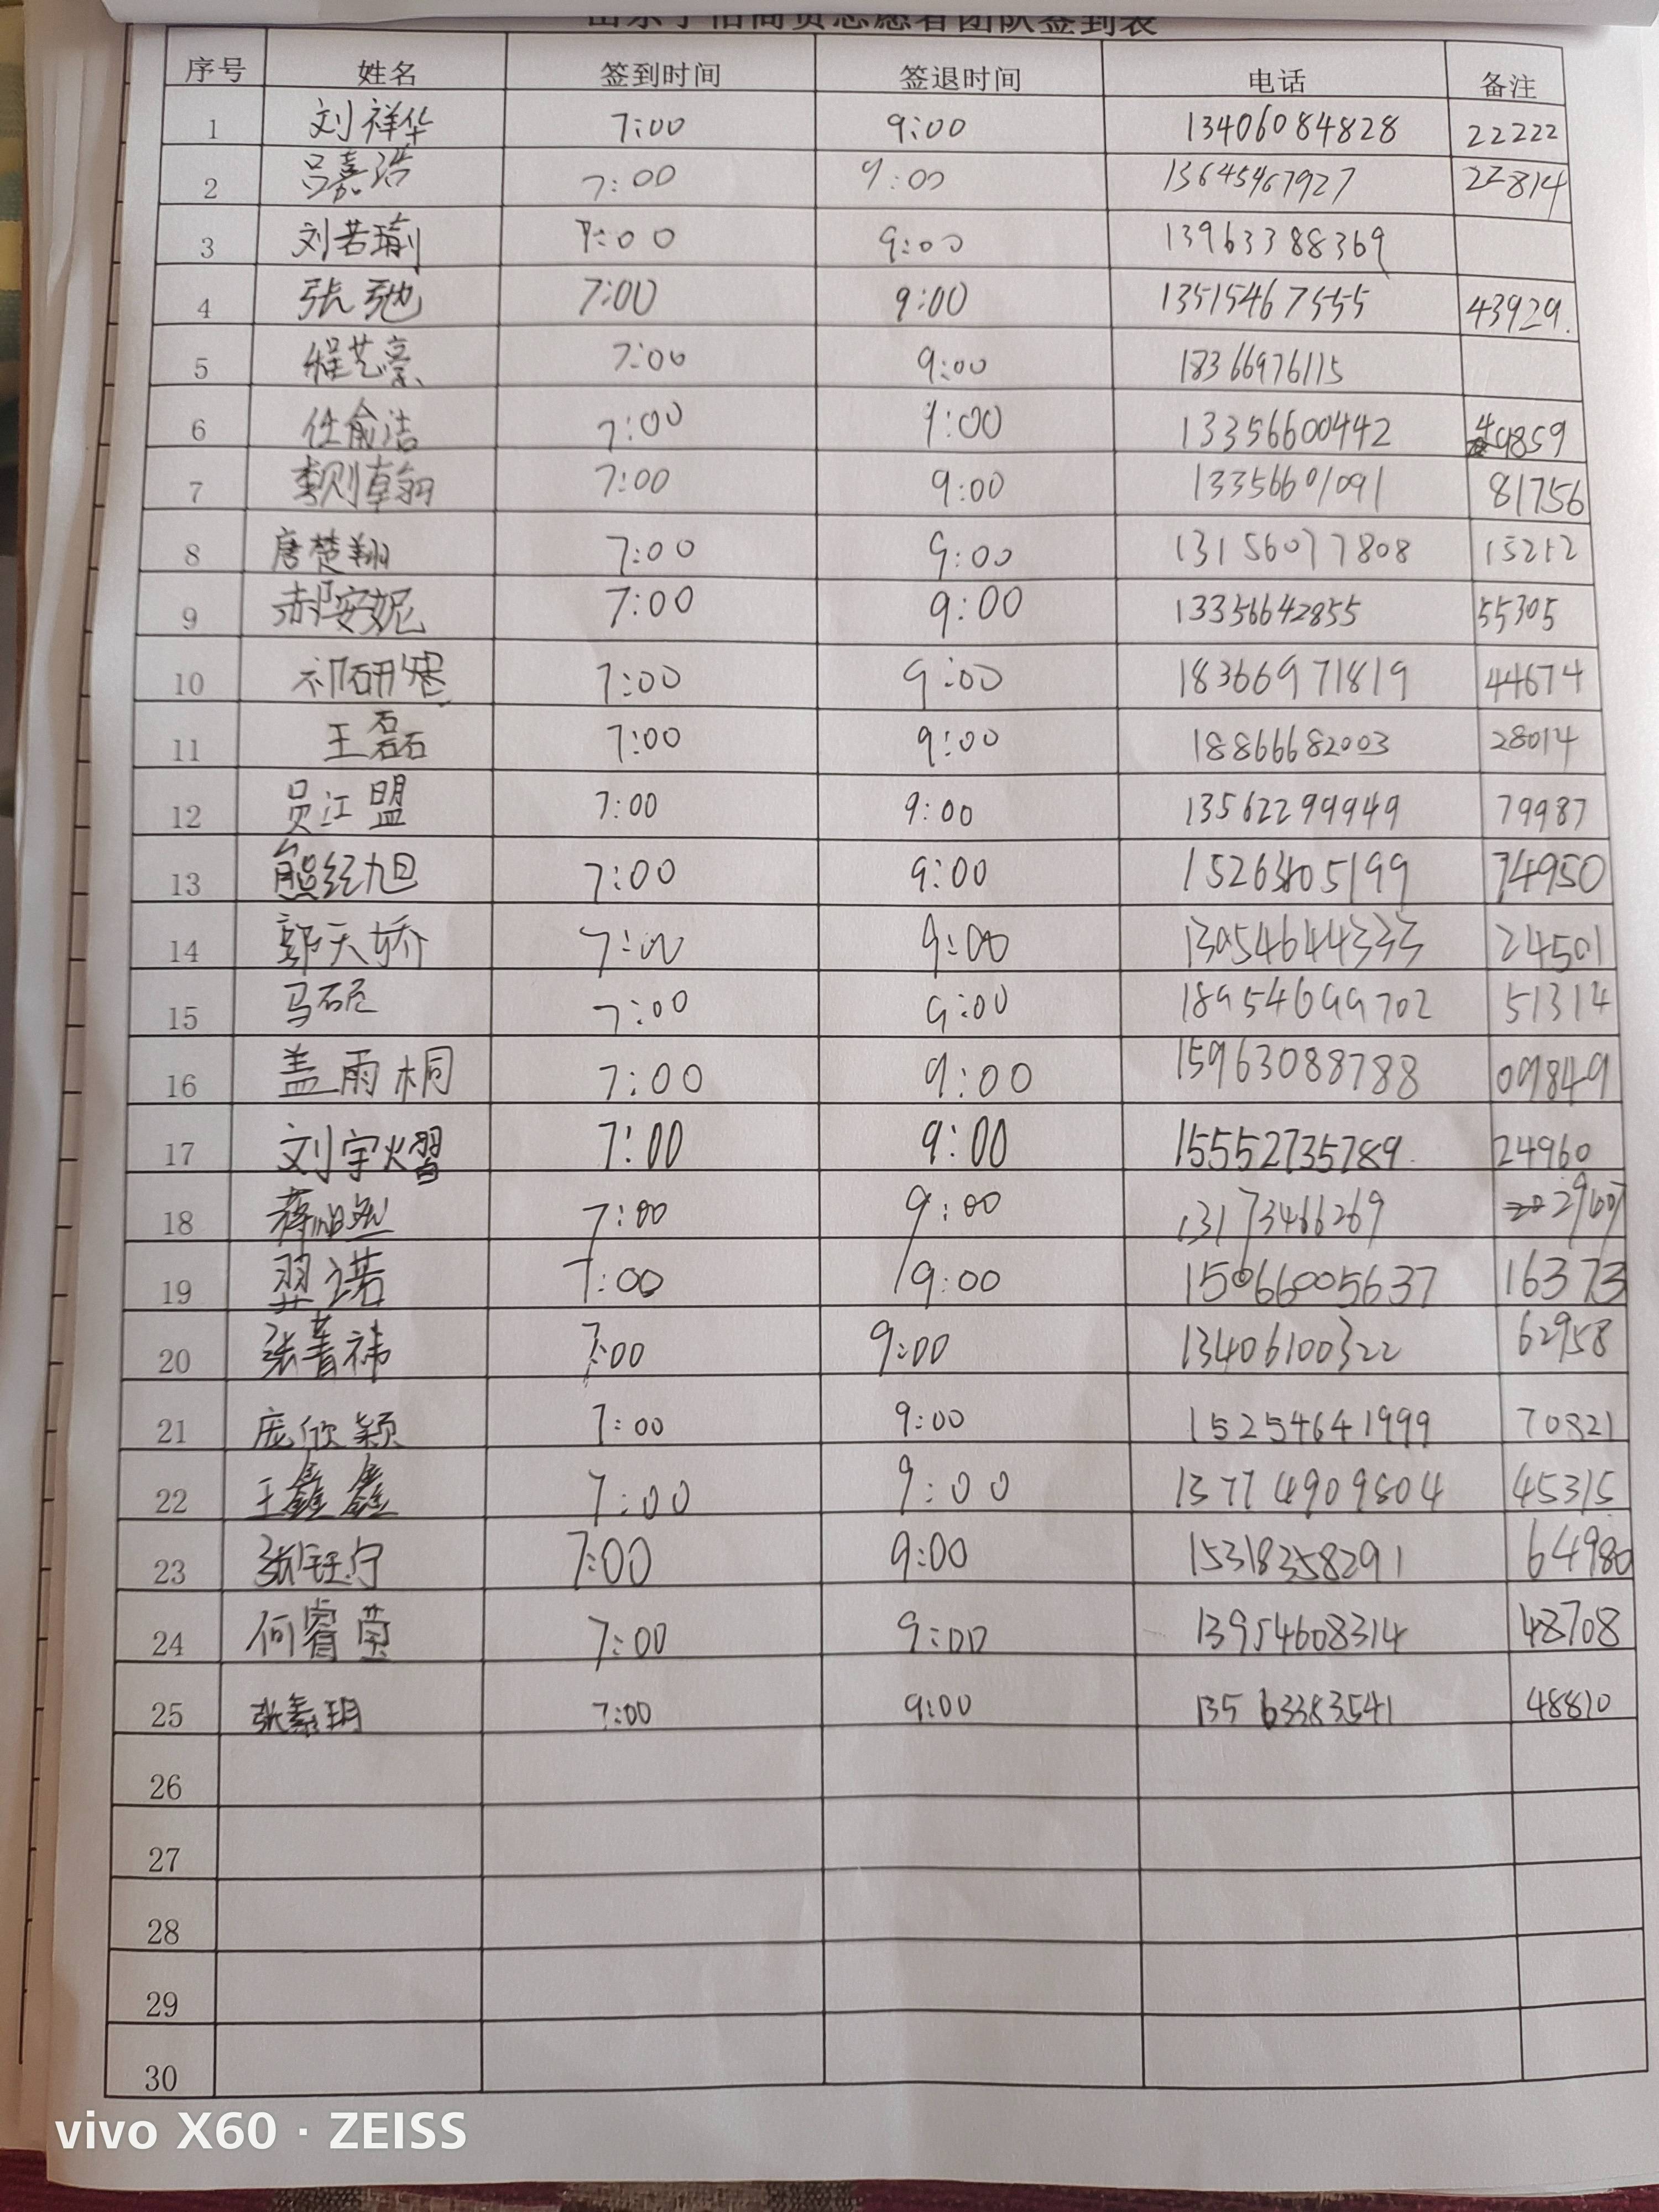 志愿者团队签到表
序号 姓名 签到时间 签退时间 电话 备注
1 刘祥华 7:00 9:00 13406084828 22222
2 吕嘉浩 7:00 9:00 13645467927 22814
3 刘若瑜 7:00 9:00 13963388369
4 张弛 7:00 9:00 13515467555 43929.
5 程艺豪 7:00 9:00 18366976115
6 任俞洁 7:00 9:00 13356600442 49859
7 李则卓翰 7:00 9:00 13356601091 81756
8 唐楚翔 7:00 9:00 13156077808 15212
9 郝安妮 7:00 9:00 13356642855 55305
10 祁研 7:00 9:00 18366971819 44674
11 王磊 7:00 9:00 18866682003 28014
12 员江盟 7:00 9:00 13562299949 79987
13 熊经旭 7:00 9:00 74950
14 郭天娇 7:00 9:00 13054644333 24501
15 马砡 7:00 9:00 18954699702 51314
16 盖雨桐 7:00 9:00 15963088788 09849
17 刘宇熠 7:00 9:00 15552735789. 24960
18 7:00 9:00 13173466269
19 7:00 9:00 15066005637 16373
20 张菁祎 7:00 9:00 13406100322 62958
21 庞欣颖 7:00 9:00 15254641999 70821
22 王鑫鑫 7:00 9:00 13774909804 45315
23 张钰宁 7:00 9:00 15318358291 64980
24 何睿莹 7:00 9:00 13954608314 48708
25 张素玥 7:00 9:00 13563383541 48810
26
27
28
29
30
vivo X60 · ZEISS